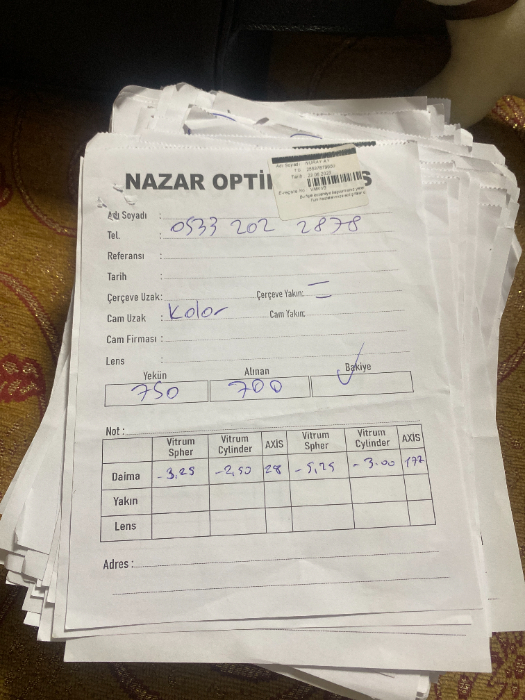 NAZAR OPTİ S
Adı Soyadı :
Tel. : 0533 202 2878
Referansı :
Tarih :
Çerçeve Uzak: Çerçeve Yakın: =
Cam Uzak : Kolor Cam Yakın:
Cam Firması :
Lens :
Yekün Alınan Bakiye
750 700 ✓
Not :
Vitrum Spher Vitrum Cylinder AXIS Vitrum Spher Vitrum Cylinder AXIS
Daima -3,25 -2,50 28 -5,25 -3.00 177
Yakın
Lens
Adres :